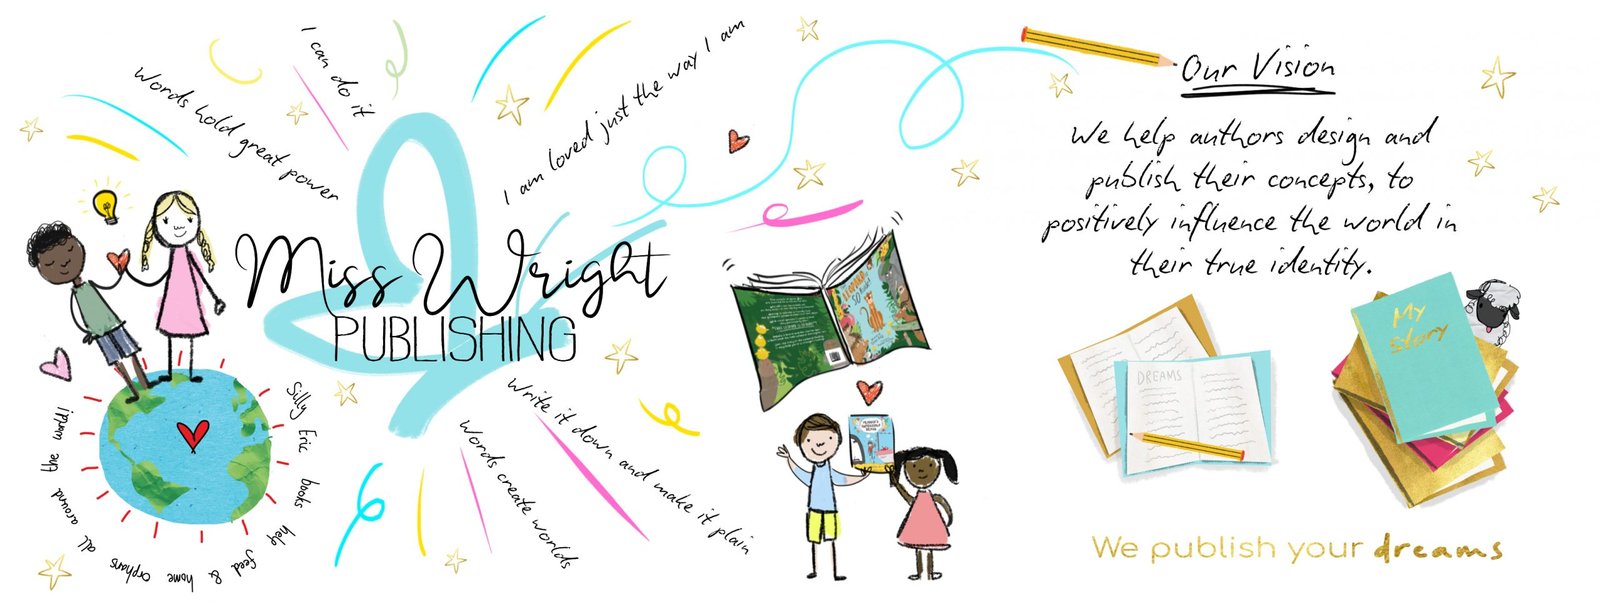 Words hold great power
I can do it
I am loved just the way I am
Miss Wright
PUBLISHING
Write it down and make it plain
Words create worlds
Silly Eric books help feed & home orphans all around the world
Our Vision
We help authors design and
publish their concepts, to
positively influence the world in
their true identity.
DREAMS
My
Story
We publish your dreams